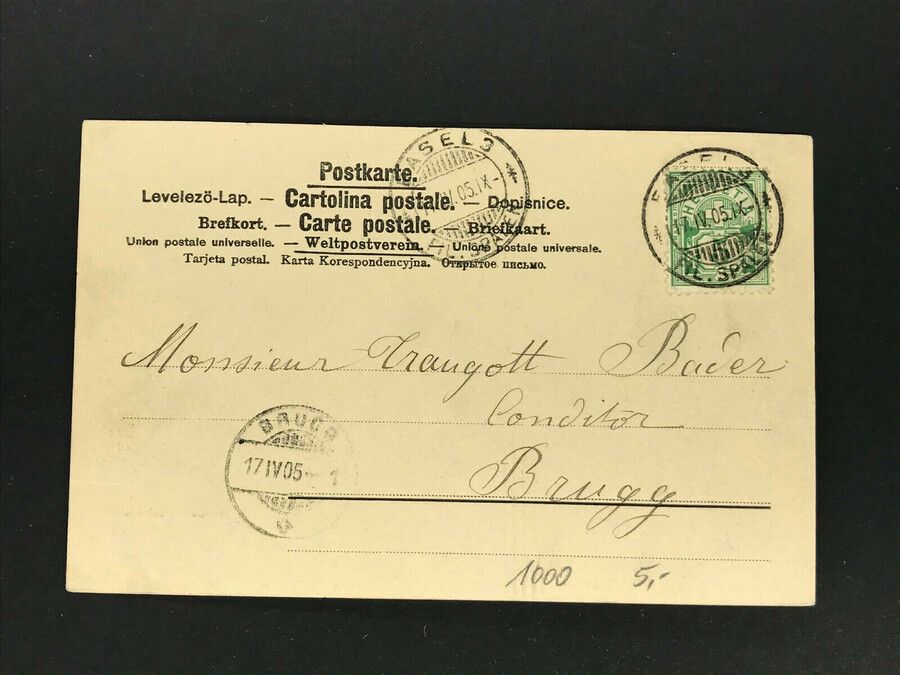 Postkarte.
Levelezö-Lap. — Cartolina postale. — Dopisnice.
Brefkort. — Carte postale. — Briefkaart.
Union postale universelle. — Weltpostverein. — Unione postale universale.
Tarjeta postal. Karta Korespondencyjna. Открытое письмо.
BASEL 3
17.IV.05.IX-
FIL. SPALEN
BASEL 3
17.IV.05.IX
FIL. SPALEN
Monsieur Traugott Bader
Conditor
Brugg
BRUGG
17 IV 05
1000 5,-